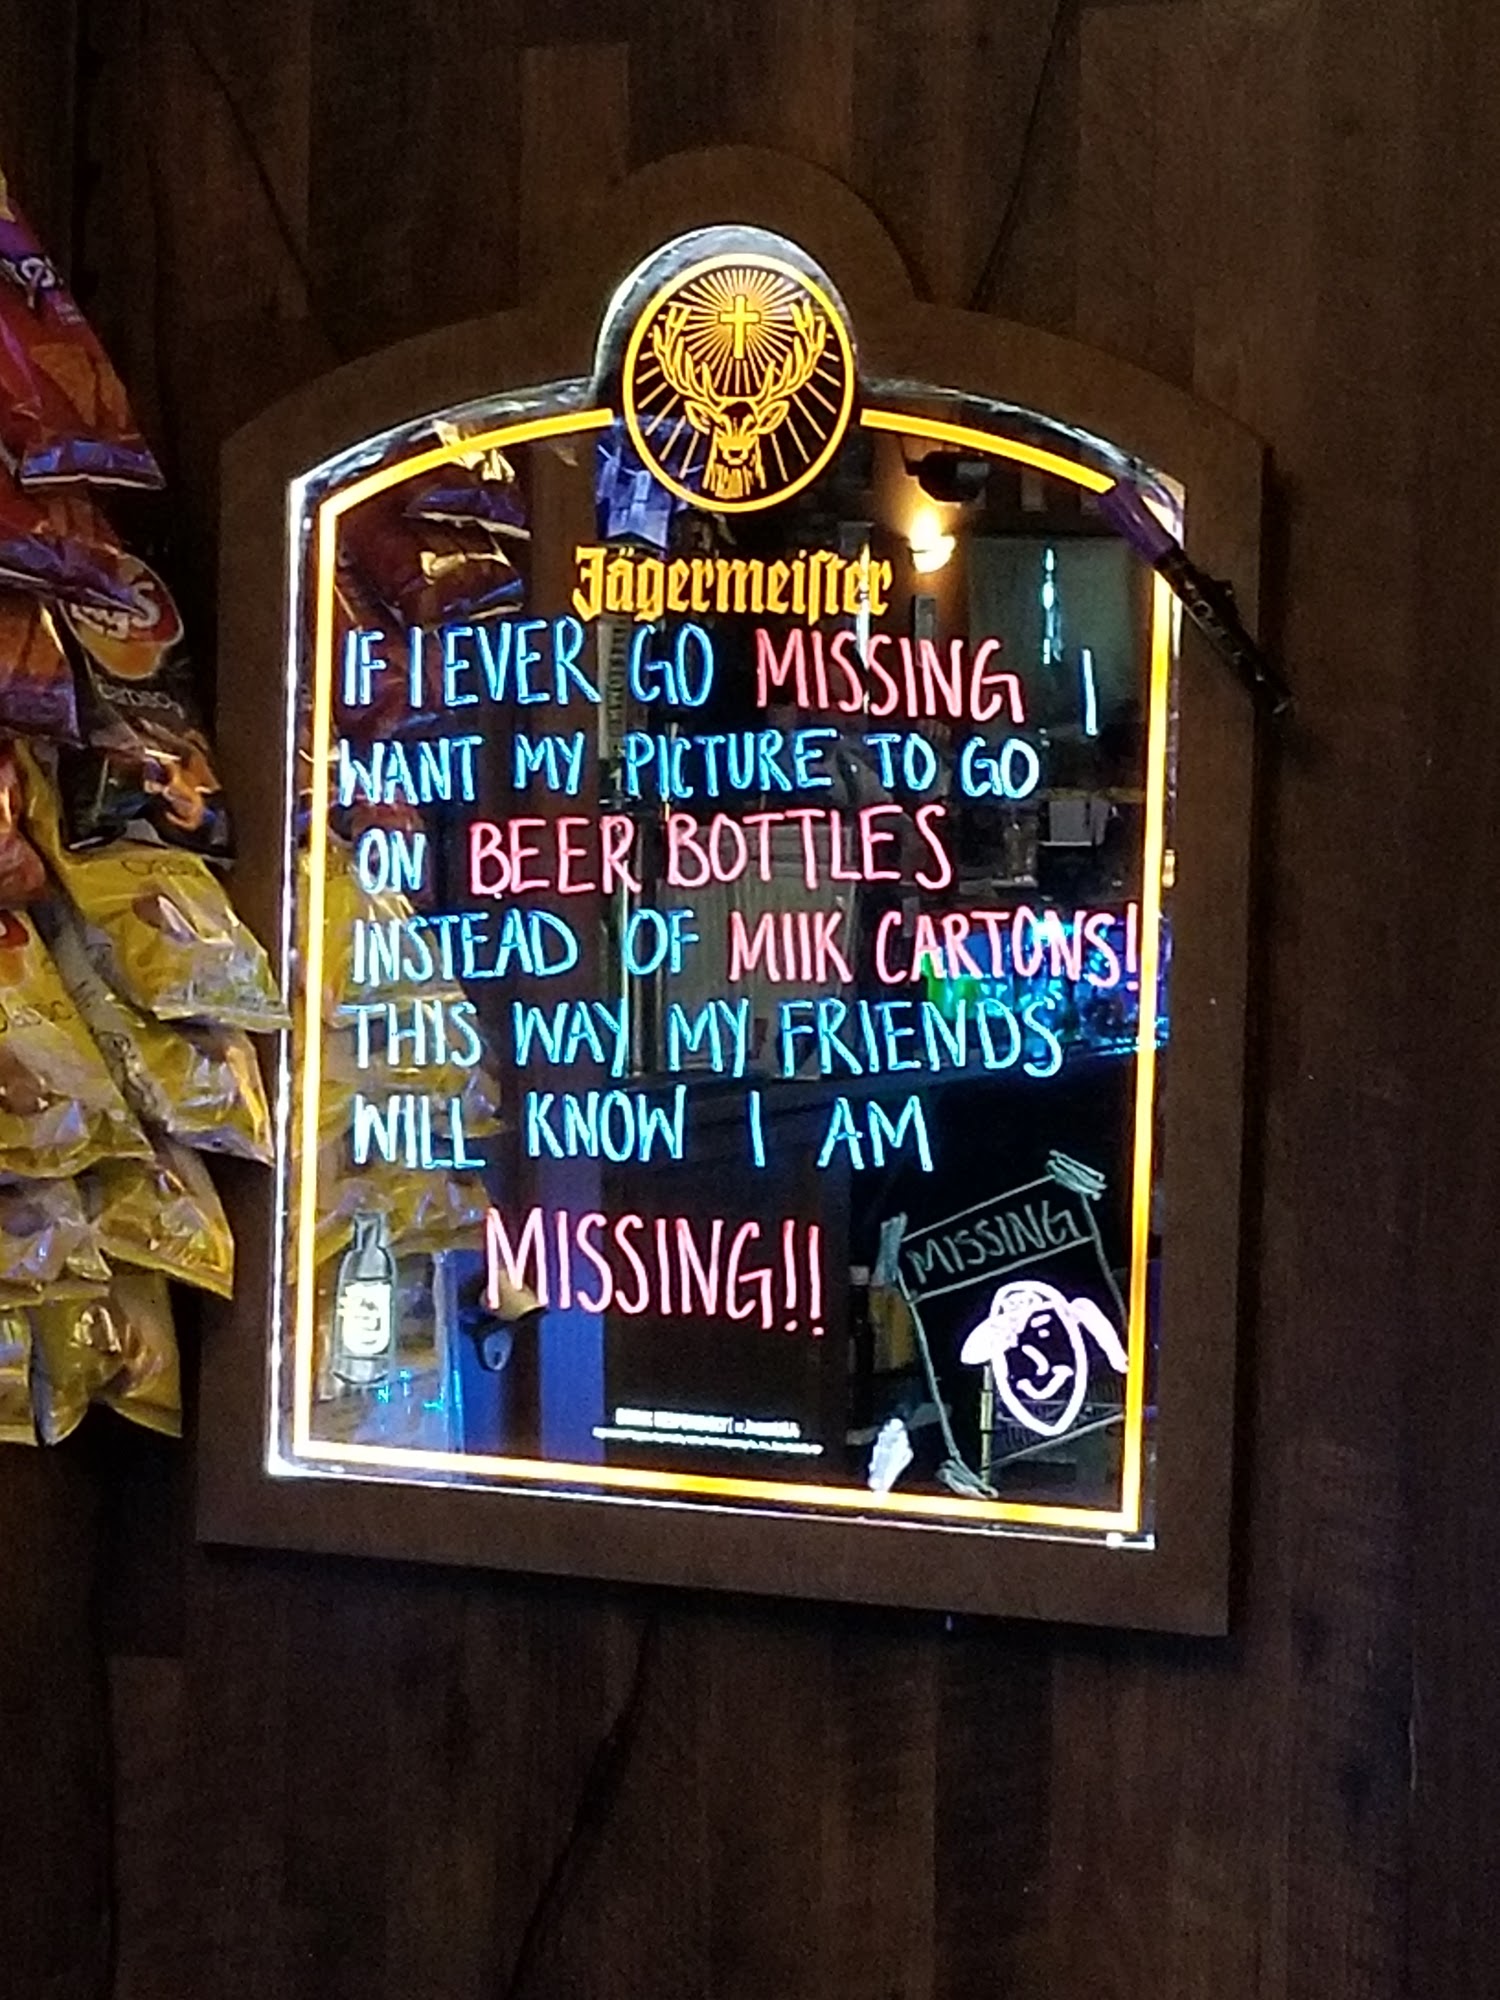 Jägermeiſter
IF I EVER GO MISSING I
WANT MY PICTURE TO GO
ON BEER BOTTLES
INSTEAD OF MIlK CARTONS!
THIS WAY MY FRIENDS
WILL KNOW I AM
MISSING!!
MISSING